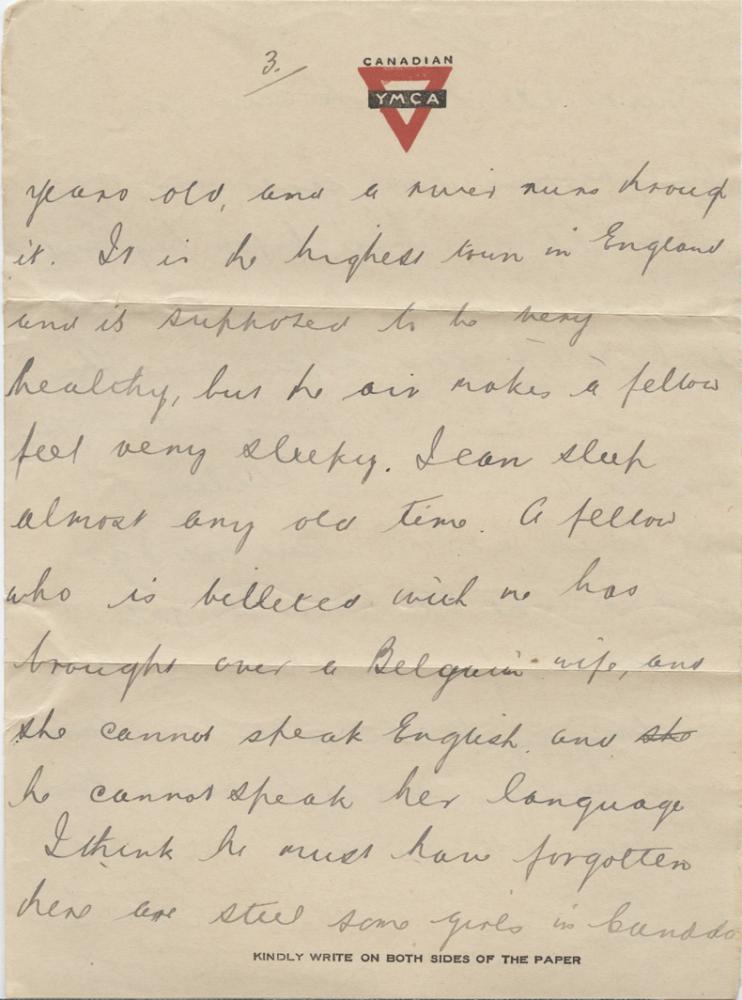 3.
CANADIAN
YMCA
years old, and a river runs through
it. It is the highest town in England
and is supposed to be very
healthy, but the air makes a fellow
feel very sleepy. I can sleep
almost any old time. A fellow
who is billeted with me has
brought over a Belguin wife, and
she cannot speak English and she
he cannot speak her language
I think he must have forgotten
there are still some girls in Canada
KINDLY WRITE ON BOTH SIDES OF THE PAPER